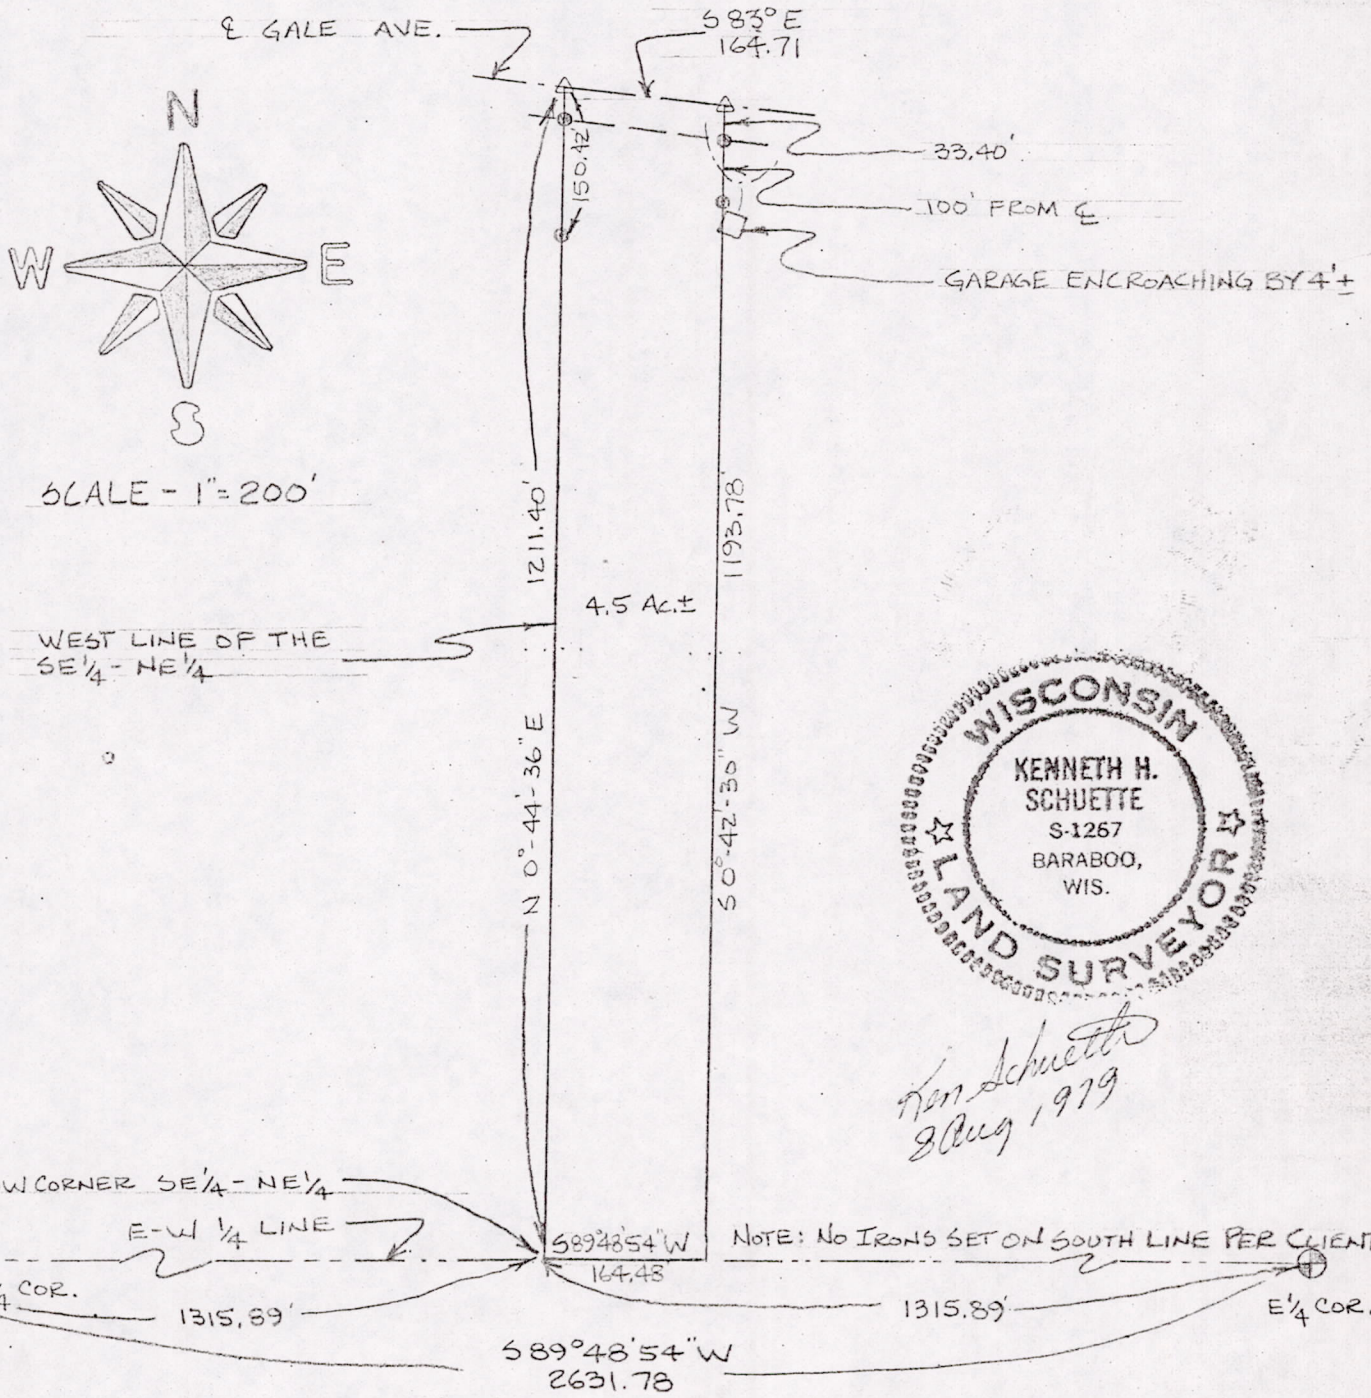 ℄ GALE AVE.
S 83° E
164.71
N
W
E
S
SCALE - 1" = 200'
150.42'
33.40'
100' FROM ℄
GARAGE ENCROACHING BY 4'±
1211.40'
1193.78'
4.5 AC.±
WEST LINE OF THE
SE 1/4 - NE 1/4
N 0°-44'-36" E
S 0°-42'-30" W
WISCONSIN
KENNETH H.
SCHUETTE
S-1267
BARABOO,
WIS.
LAND SURVEYOR
Ken Schuette
8 Aug, 1979
W CORNER SE 1/4 - NE 1/4
E-W 1/4 LINE
S89°48'54"W
164.48
NOTE: NO IRONS SET ON SOUTH LINE PER CLIENT
1/4 COR.
1315.89'
1315.89'
E 1/4 COR.
S89°48'54"W
2631.78